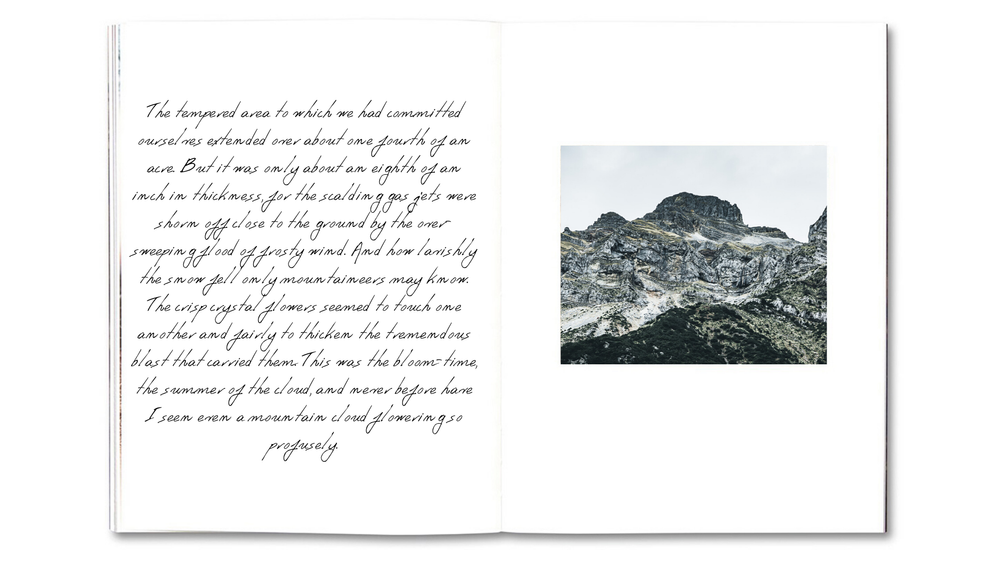 The tempered area to which we had committed
ourselves extended over about one fourth of an
acre. But it was only about an eighth of an
inch in thickness, for the scalding gas jets were
shorn off close to the ground by the over
sweeping flood of frosty wind. And how lavishly
the snow fell only mountaineers may know.
The crisp crystal flowers seemed to touch one
another and fairly to thicken the tremendous
blast that carried them. This was the bloom-time,
the summer of the cloud, and never before have
I seen even a mountain cloud flowering so
profusely.